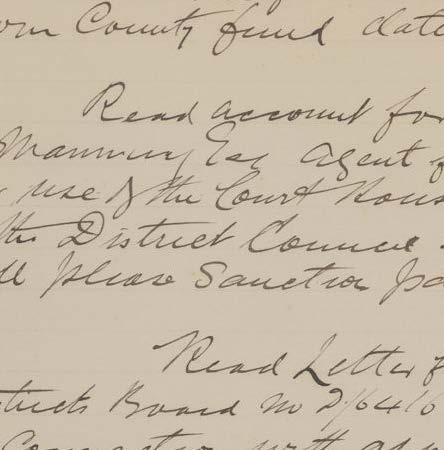 County fund date
Read account for
Manning Esq agent f
use of the Court Hous
the District Council
please Sanction pa
Read Letter f
tricts Board No 2/6416
Connection with